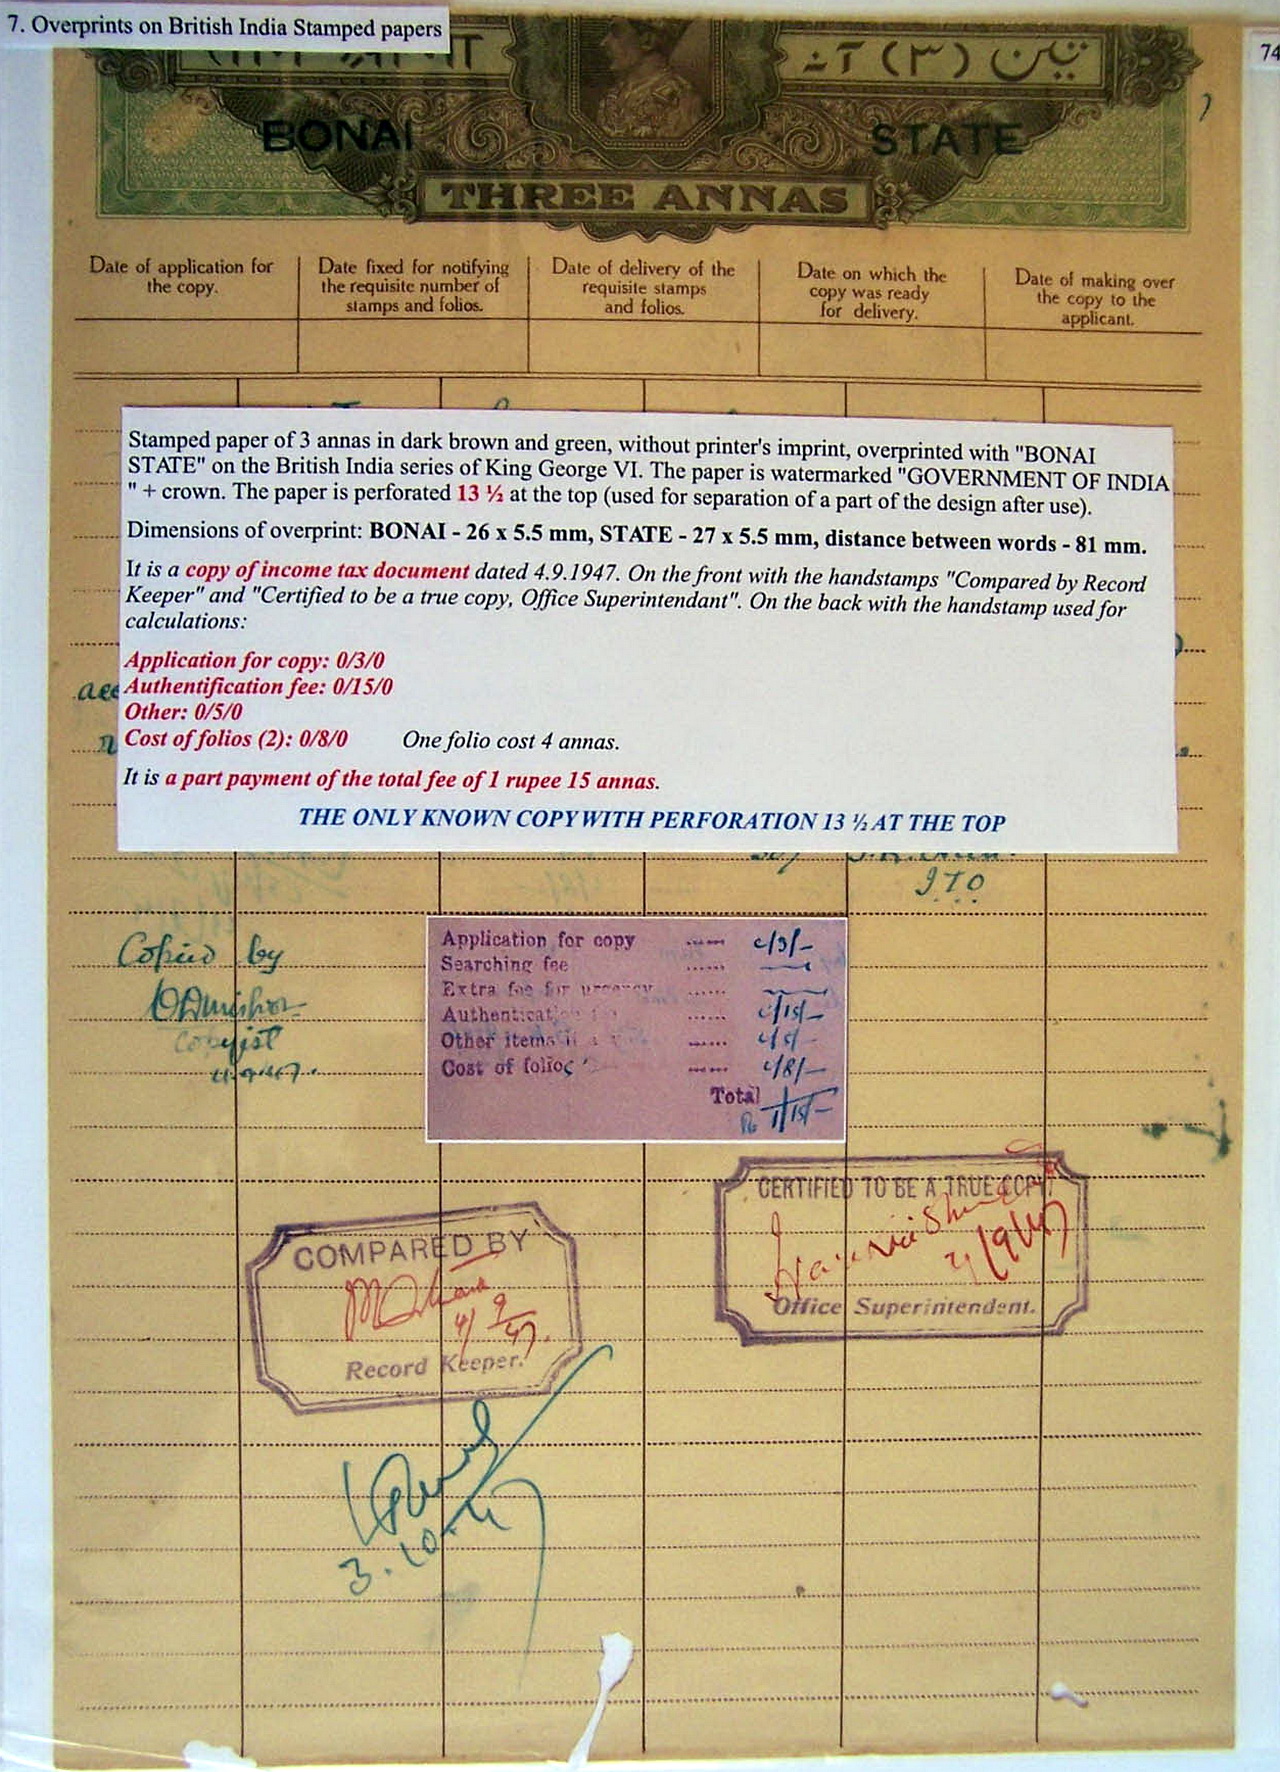 7. Overprints on British India Stamped papers
74
تین (۳) آنہ
BONAI STATE
THREE ANNAS
Date of application for the copy.
Date fixed for notifying the requisite number of stamps and folios.
Date of delivery of the requisite stamps and folios.
Date on which the copy was ready for delivery.
Date of making over the copy to the applicant.
Stamped paper of 3 annas in dark brown and green, without printer's imprint, overprinted with "BONAI
STATE" on the British India series of King George VI. The paper is watermarked "GOVERNMENT OF INDIA
" + crown. The paper is perforated 13 ½ at the top (used for separation of a part of the design after use).
Dimensions of overprint: BONAI - 26 x 5.5 mm, STATE - 27 x 5.5 mm, distance between words - 81 mm.
It is a copy of income tax document dated 4.9.1947. On the front with the handstamps "Compared by Record
Keeper" and "Certified to be a true copy, Office Superintendant". On the back with the handstamp used for
calculations:
Application for copy: 0/3/0
Authentification fee: 0/15/0
Other: 0/5/0
Cost of folios (2): 0/8/0 One folio cost 4 annas.
It is a part payment of the total fee of 1 rupee 15 annas.
THE ONLY KNOWN COPY WITH PERFORATION 13 ½ AT THE TOP
ITO
Copied by
Copyist
4.9.47.
Application for copy ...... 0/3/-
Searching fee ......
Extra fee for urgency ......
Authenticat ...... 0/15/-
Other items ...... 0/5/-
Cost of folios ...... 0/8/-
Total
Rs 1/15/-
CERTIFIED TO BE A TRUE COPY
4/9/47
Office Superintendent.
COMPARED BY
4/9/47.
Record Keeper.
3.10.47